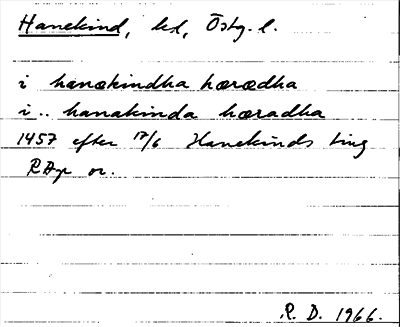 Hanekind, hd, Östg. l.
i hanækindha hæradha
i .. hanakinda hæradha
1457 efter 17/6 Hanekinds ting
RAp or.
R. D. 1966.